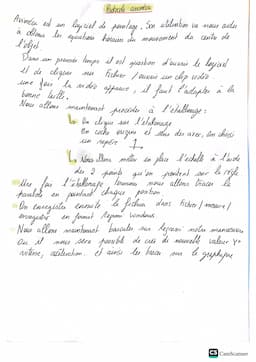 Protocole avimeca
Avimeca est un logiciel de pointage, son utilisation va nous aider
à obtenir les équations horaires du mouvement du centre de
l'objet.
Dans un premier temps il est question d'ouvrir le logiciel
et de cliquer sur Fichier / ouvrir un clip vidéo.
une fois la vidéo apparue, il faut l'adapter à la
bonne taille.
Nous allons maintenant procéder à l'étalonnage:
On clique sur l'étalonnage
On coche origine et sens des axes, on choisi
un repère
Nous allons mettre en place l'échelle à l'aide
des 2 points qu'on sur la règle
Une fois l'étalonnage terminée nous allons tracer la
parabole en pointant chaque position.
On enregistre ensuite le fichier dans fichier / mesure /
enregistrer en format Regressi windows.
Nous allons maintenant basculer sur Regressi
Où il nous sera possible de créer de nouvelle valeur
vitesse, accélération. et ainsi les tracer sur le graphique
CS CamScanner